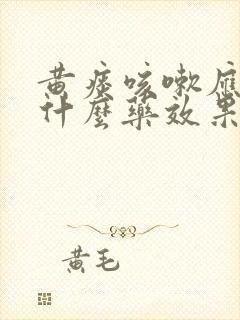 黄痰咳嗽应
什麼藥效果
黄毛